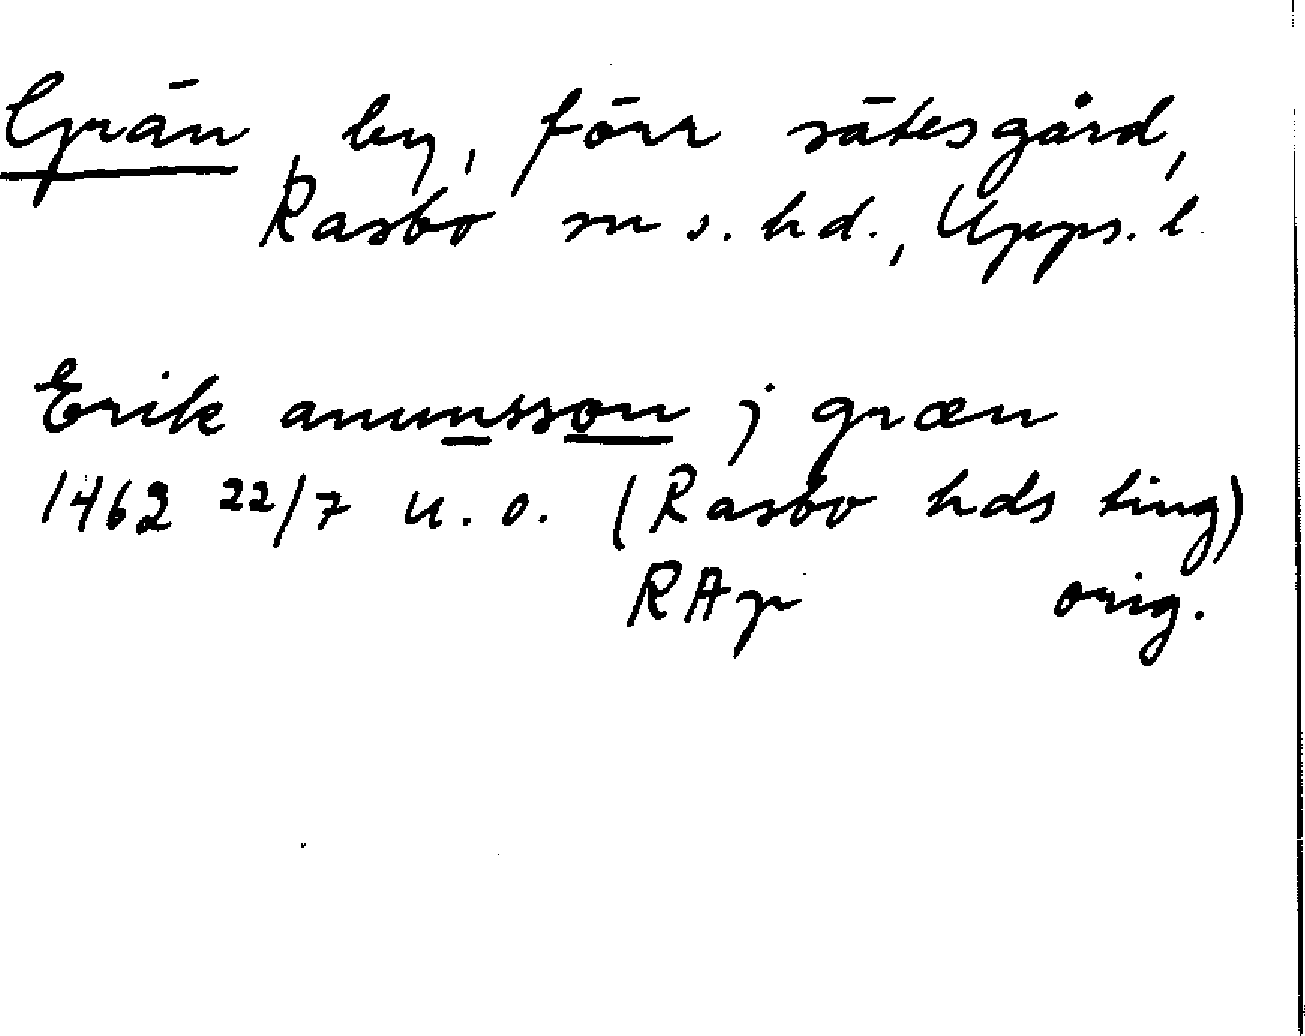 Grän, by, förr sätesgård,
Rasbo sn o. hd., Upps. l.
Erik anunsson j græn
1462 22/7 u. o. (Rasbo hds ting)
RAp orig.